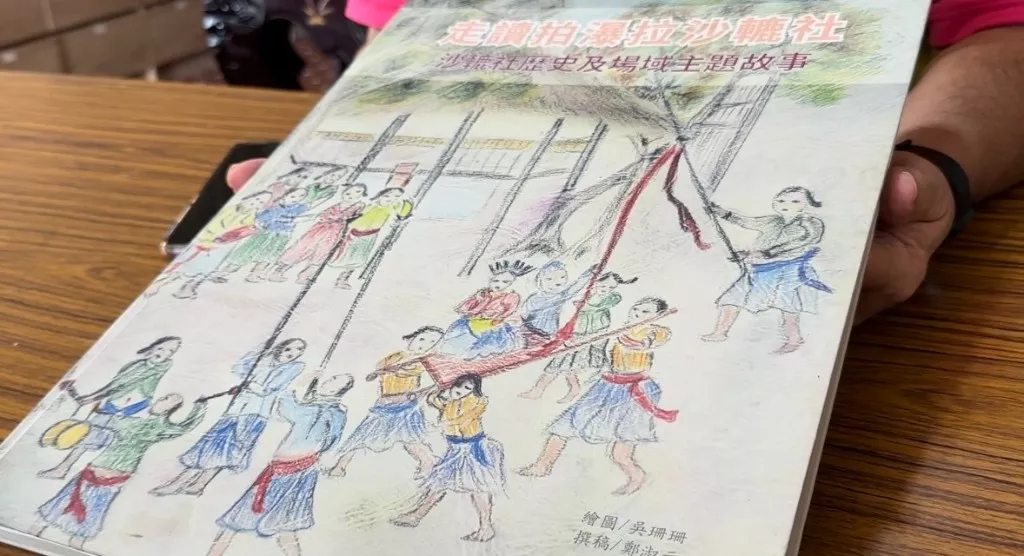 走讀拍瀑拉沙轆社
沙轆社歷史及場域主題故事
繪圖/吳珊珊
撰稿/鄭淑